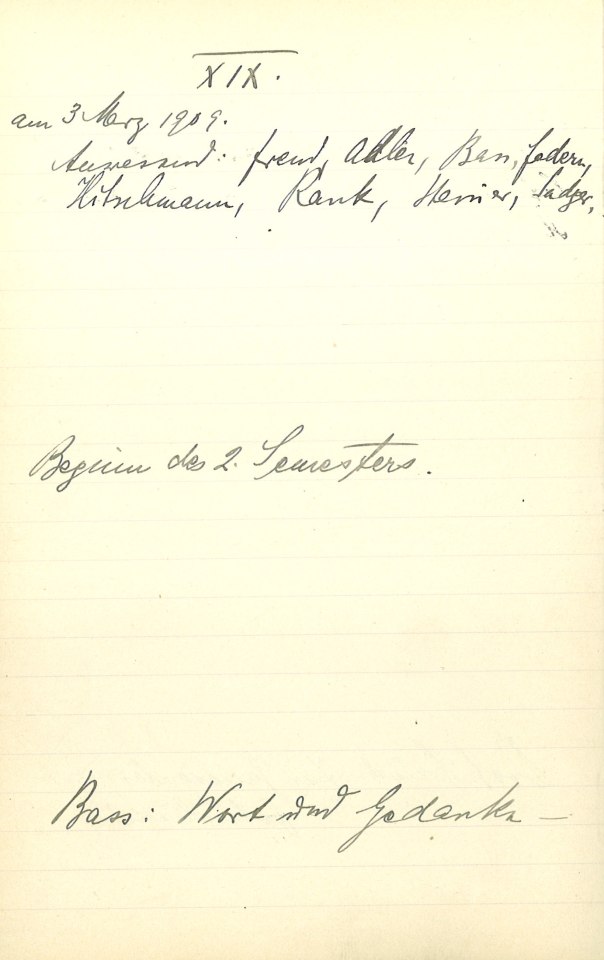 XIX.
am 3 Merz 1909.
Anwessend: freud, Adler, Bass, federn,
Hitschmann, Rank, Steiner, Sadger,
Beginn des 2. Semesters.
Bass: Wort und Gedanke —